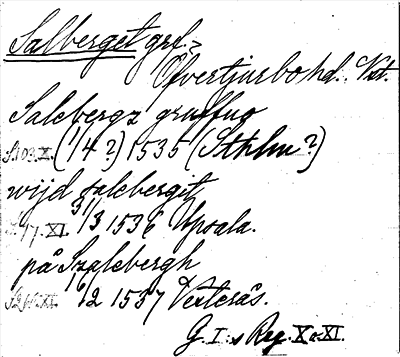 Salberget grf.?
Öfvertjurbo hd. Vst.
Salebergz gruffuo
S. 103. X. (1/4?) 1535 (Sthlm?)
wijd salebergit
S. 17. XI. 31/3 1536 Upsala.
på Szalebergh
16/2 1537 Vesterås.
G. I:s Reg. X o. XI.